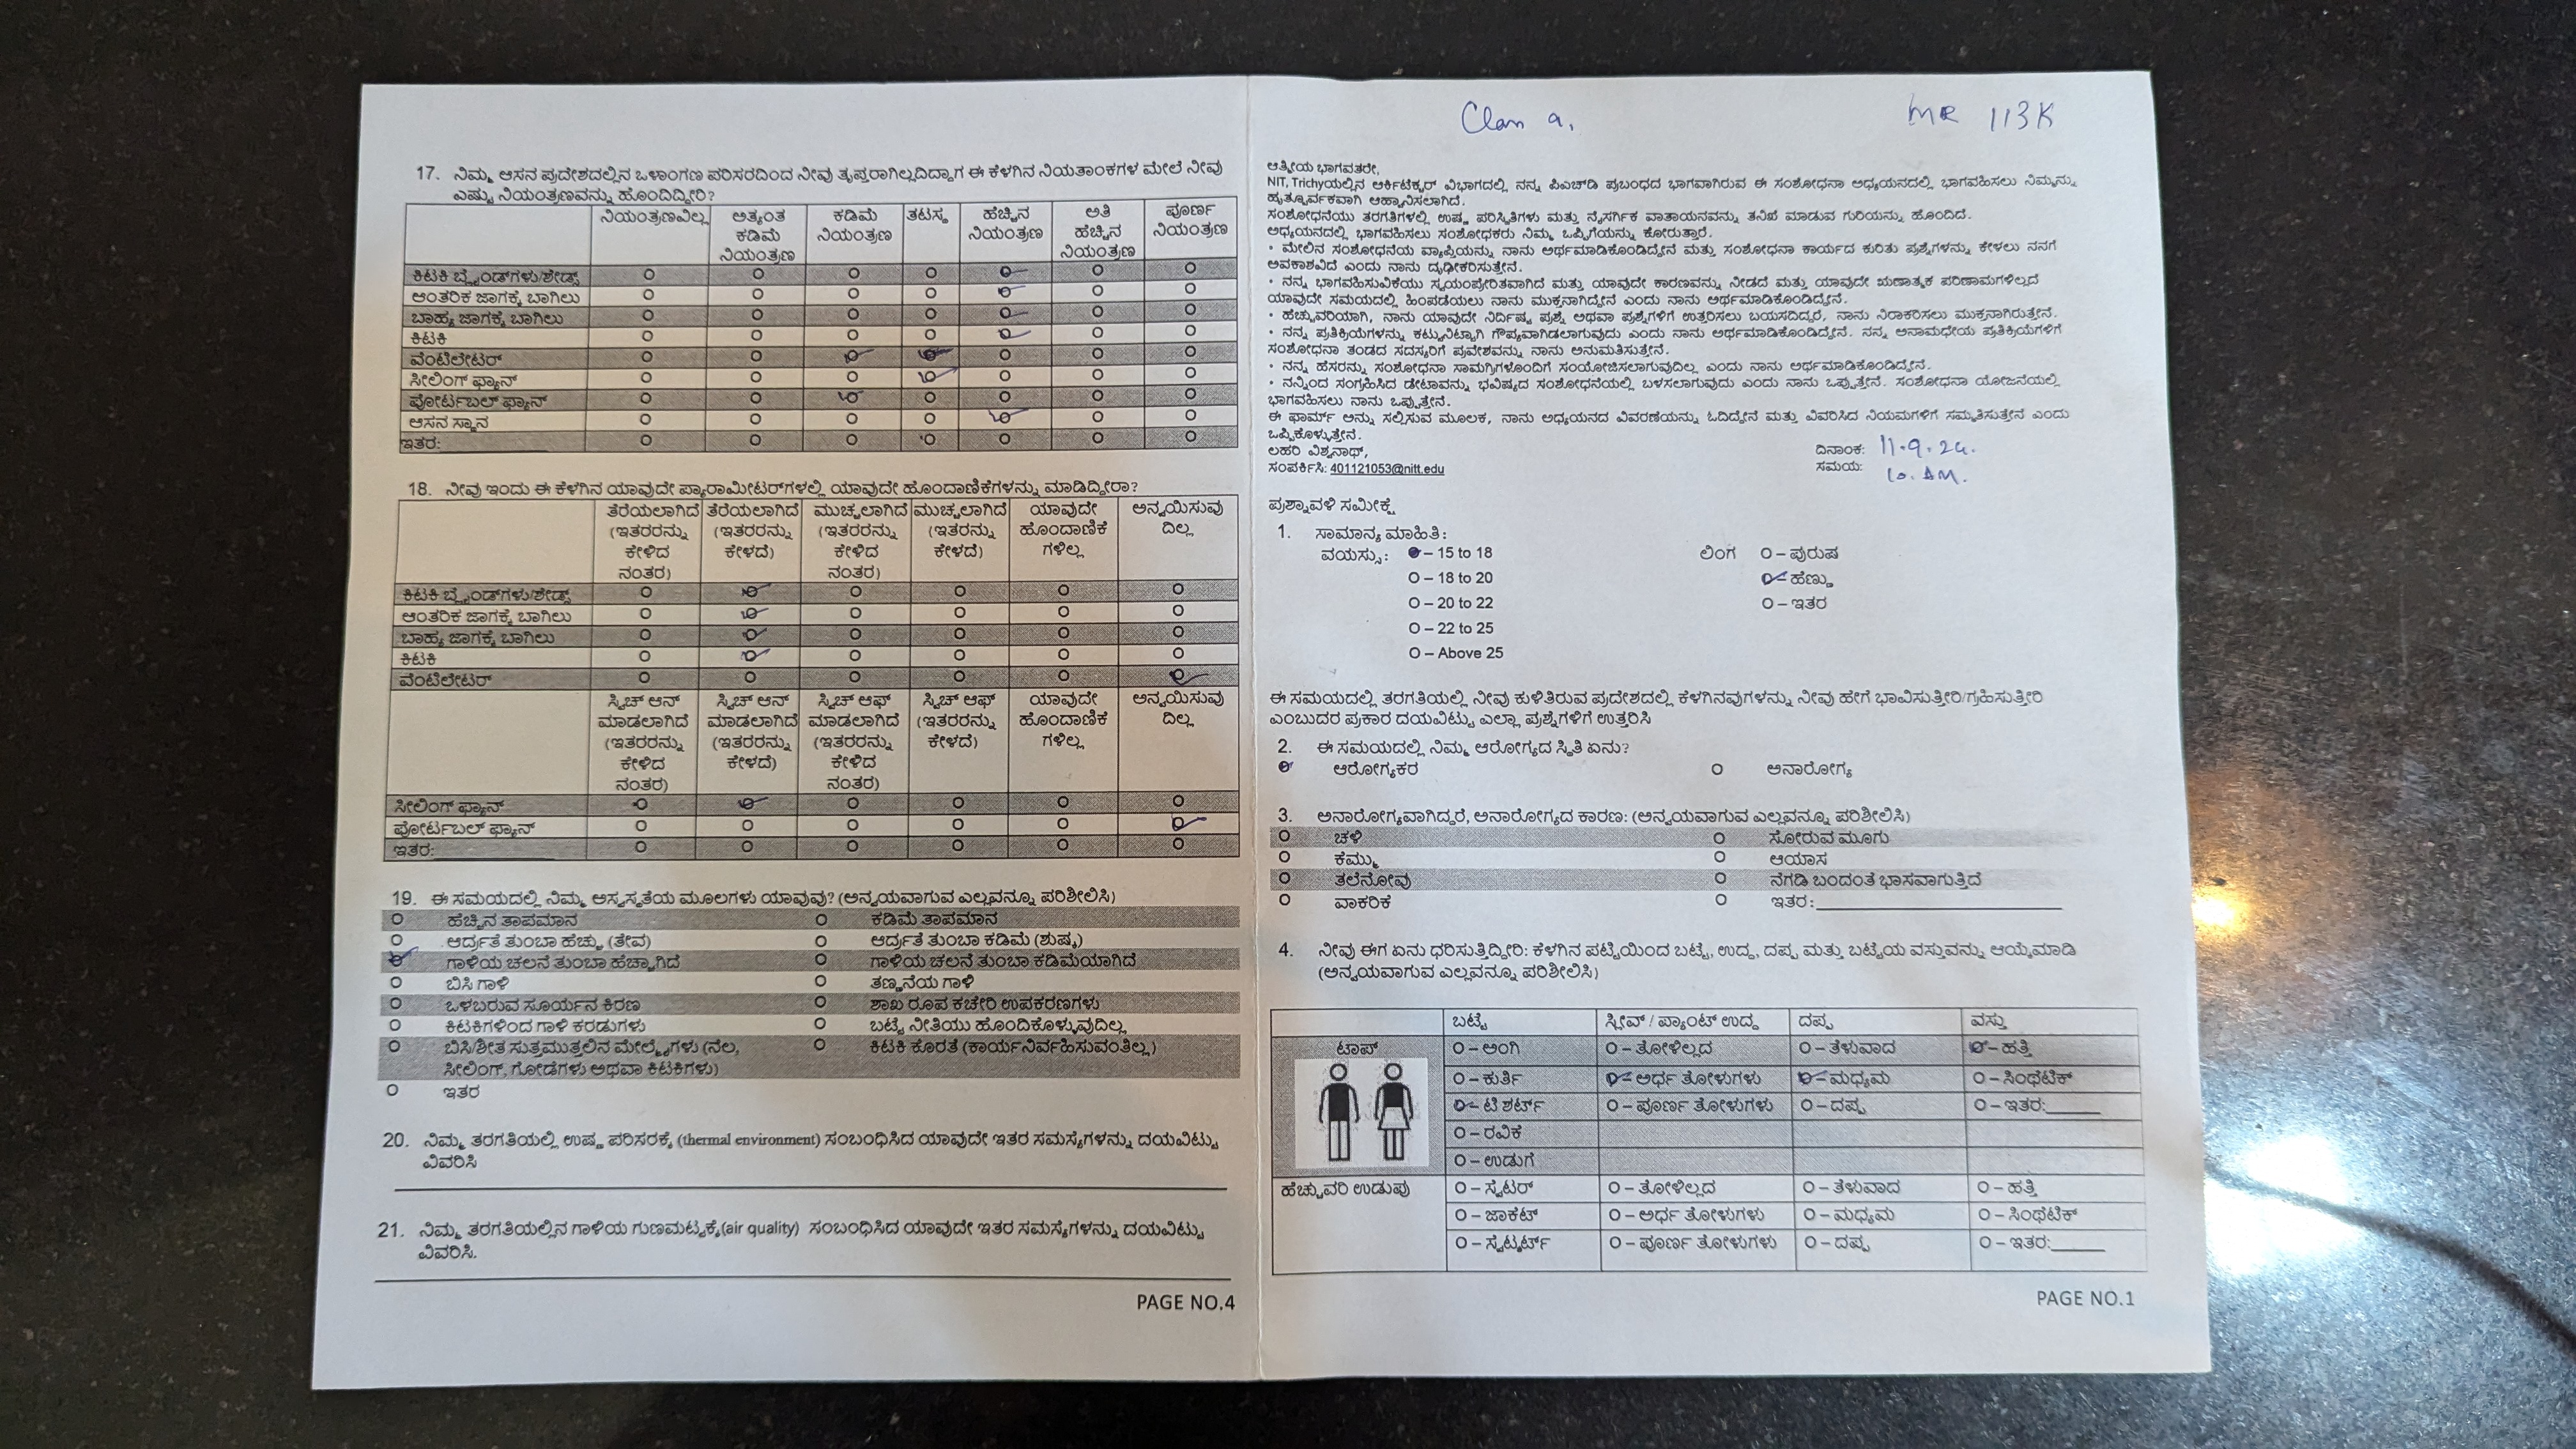 17. ನಿಮ್ಮ ಆಸನ ಪ್ರದೇಶದಲ್ಲಿನ ಒಳಾಂಗಣ ಪರಿಸರದಿಂದ ನೀವು ತೃಪ್ತರಾಗಿಲ್ಲದಿದ್ದಾಗ ಈ ಕೆಳಗಿನ ನಿಯತಾಂಕಗಳ ಮೇಲೆ ನೀವು
ಎಷ್ಟು ನಿಯಂತ್ರಣವನ್ನು ಹೊಂದಿದ್ದೀರಿ?
ನಿಯಂತ್ರಣವಿಲ್ಲ ಅತ್ಯಂತ ಕಡಿಮೆ ನಿಯಂತ್ರಣ ಕಡಿಮೆ ನಿಯಂತ್ರಣ ತಟಸ್ಥ ಹೆಚ್ಚಿನ ನಿಯಂತ್ರಣ ಅತಿ ಹೆಚ್ಚಿನ ನಿಯಂತ್ರಣ ಪೂರ್ಣ ನಿಯಂತ್ರಣ
ಕಿಟಕಿ ಬ್ಲೈಂಡ್‌ಗಳು/ಶೇಡ್ಸ್
ಆಂತರಿಕ ಜಾಗಕ್ಕೆ ಬಾಗಿಲು
ಬಾಹ್ಯ ಜಾಗಕ್ಕೆ ಬಾಗಿಲು
ಕಿಟಕಿ
ವೆಂಟಿಲೇಟರ್
ಸೀಲಿಂಗ್ ಫ್ಯಾನ್
ಪೋರ್ಟಬಲ್ ಫ್ಯಾನ್
ಆಸನ ಸ್ಥಾನ
ಇತರ:
18. ನೀವು ಇಂದು ಈ ಕೆಳಗಿನ ಯಾವುದೇ ಪ್ಯಾರಾಮೀಟರ್‌ಗಳಲ್ಲಿ ಯಾವುದೇ ಹೊಂದಾಣಿಕೆಗಳನ್ನು ಮಾಡಿದ್ದೀರಾ?
ತೆರೆಯಲಾಗಿದೆ (ಇತರರನ್ನು ಕೇಳಿದ ನಂತರ) ತೆರೆಯಲಾಗಿದೆ (ಇತರರನ್ನು ಕೇಳದೆ) ಮುಚ್ಚಲಾಗಿದೆ (ಇತರರನ್ನು ಕೇಳಿದ ನಂತರ) ಮುಚ್ಚಲಾಗಿದೆ (ಇತರನ್ನು ಕೇಳದೆ) ಯಾವುದೇ ಹೊಂದಾಣಿಕೆ ಗಳಿಲ್ಲ ಅನ್ವಯಿಸುವು ದಿಲ್ಲ
ಕಿಟಕಿ ಬ್ಲೈಂಡ್‌ಗಳು/ಶೇಡ್ಸ್
ಆಂತರಿಕ ಜಾಗಕ್ಕೆ ಬಾಗಿಲು
ಬಾಹ್ಯ ಜಾಗಕ್ಕೆ ಬಾಗಿಲು
ಕಿಟಕಿ
ವೆಂಟಿಲೇಟರ್
ಸ್ವಿಚ್ ಆನ್ ಮಾಡಲಾಗಿದೆ (ಇತರರನ್ನು ಕೇಳಿದ ನಂತರ) ಸ್ವಿಚ್ ಆನ್ ಮಾಡಲಾಗಿದೆ (ಇತರರನ್ನು ಕೇಳದೆ) ಸ್ವಿಚ್ ಆಫ್ ಮಾಡಲಾಗಿದೆ (ಇತರರನ್ನು ಕೇಳಿದ ನಂತರ) ಸ್ವಿಚ್ ಆಫ್ (ಇತರರನ್ನು ಕೇಳದೆ) ಯಾವುದೇ ಹೊಂದಾಣಿಕೆ ಗಳಿಲ್ಲ ಅನ್ವಯಿಸುವು ದಿಲ್ಲ
ಸೀಲಿಂಗ್ ಫ್ಯಾನ್
ಪೋರ್ಟಬಲ್ ಫ್ಯಾನ್
ಇತರ:
19. ಈ ಸಮಯದಲ್ಲಿ ನಿಮ್ಮ ಅಸ್ವಸ್ಥತೆಯ ಮೂಲಗಳು ಯಾವುವು? (ಅನ್ವಯವಾಗುವ ಎಲ್ಲವನ್ನೂ ಪರಿಶೀಲಿಸಿ)
ಹೆಚ್ಚಿನ ತಾಪಮಾನ ಕಡಿಮೆ ತಾಪಮಾನ
ಆರ್ದ್ರತೆ ತುಂಬಾ ಹೆಚ್ಚು (ತೇವ) ಆರ್ದ್ರತೆ ತುಂಬಾ ಕಡಿಮೆ (ಶುಷ್ಕ)
ಗಾಳಿಯ ಚಲನೆ ತುಂಬಾ ಹೆಚ್ಚಾಗಿದೆ ಗಾಳಿಯ ಚಲನೆ ತುಂಬಾ ಕಡಿಮೆಯಾಗಿದೆ
ಬಿಸಿ ಗಾಳಿ ತಣ್ಣನೆಯ ಗಾಳಿ
ಒಳಬರುವ ಸೂರ್ಯನ ಕಿರಣ ಶಾಖ ರೂಪ ಕಚೇರಿ ಉಪಕರಣಗಳು
ಕಿಟಕಿಗಳಿಂದ ಗಾಳಿ ಕರಡುಗಳು ಬಟ್ಟೆ ನೀತಿಯು ಹೊಂದಿಕೊಳ್ಳುವುದಿಲ್ಲ
ಬಿಸಿ/ಶೀತ ಸುತ್ತಮುತ್ತಲಿನ ಮೇಲ್ಮೈಗಳು (ನೆಲ, ಕಿಟಕಿ ಕೊರತೆ (ಕಾರ್ಯನಿರ್ವಹಿಸುವಂತಿಲ್ಲ)
ಸೀಲಿಂಗ್, ಗೋಡೆಗಳು ಅಥವಾ ಕಿಟಕಿಗಳು)
ಇತರ
20. ನಿಮ್ಮ ತರಗತಿಯಲ್ಲಿ ಉಷ್ಣ ಪರಿಸರಕ್ಕೆ (thermal environment) ಸಂಬಂಧಿಸಿದ ಯಾವುದೇ ಇತರ ಸಮಸ್ಯೆಗಳನ್ನು ದಯವಿಟ್ಟು
ವಿವರಿಸಿ
21. ನಿಮ್ಮ ತರಗತಿಯಲ್ಲಿನ ಗಾಳಿಯ ಗುಣಮಟ್ಟಕ್ಕೆ(air quality) ಸಂಬಂಧಿಸಿದ ಯಾವುದೇ ಇತರ ಸಮಸ್ಯೆಗಳನ್ನು ದಯವಿಟ್ಟು
ವಿವರಿಸಿ.
PAGE NO.4
9. MR 113K
ಆತ್ಮೀಯ ಭಾಗವತರೇ,
NIT, Trichyಯಲ್ಲಿನ ಆರ್ಕಿಟೆಕ್ಚರ್ ವಿಭಾಗದಲ್ಲಿ ನನ್ನ ಪಿಎಚ್‌ಡಿ ಪ್ರಬಂಧದ ಭಾಗವಾಗಿರುವ ಈ ಸಂಶೋಧನಾ ಅಧ್ಯಯನದಲ್ಲಿ ಭಾಗವಹಿಸಲು ನಿಮ್ಮನ್ನು
ಹೃತ್ಪೂರ್ವಕವಾಗಿ ಆಹ್ವಾನಿಸಲಾಗಿದೆ.
ಸಂಶೋಧನೆಯು ತರಗತಿಗಳಲ್ಲಿ ಉಷ್ಣ ಪರಿಸ್ಥಿತಿಗಳು ಮತ್ತು ನೈಸರ್ಗಿಕ ವಾತಾಯನವನ್ನು ತನಿಖೆ ಮಾಡುವ ಗುರಿಯನ್ನು ಹೊಂದಿದೆ.
ಅಧ್ಯಯನದಲ್ಲಿ ಭಾಗವಹಿಸಲು ಸಂಶೋಧಕರು ನಿಮ್ಮ ಒಪ್ಪಿಗೆಯನ್ನು ಕೋರುತ್ತಾರೆ.
• ಮೇಲಿನ ಸಂಶೋಧನೆಯ ವ್ಯಾಪ್ತಿಯನ್ನು ನಾನು ಅರ್ಥಮಾಡಿಕೊಂಡಿದ್ದೇನೆ ಮತ್ತು ಸಂಶೋಧನಾ ಕಾರ್ಯದ ಕುರಿತು ಪ್ರಶ್ನೆಗಳನ್ನು ಕೇಳಲು ನನಗೆ
ಅವಕಾಶವಿದೆ ಎಂದು ನಾನು ದೃಢೀಕರಿಸುತ್ತೇನೆ.
• ನನ್ನ ಭಾಗವಹಿಸುವಿಕೆಯು ಸ್ವಯಂಪ್ರೇರಿತವಾಗಿದೆ ಮತ್ತು ಯಾವುದೇ ಕಾರಣವನ್ನು ನೀಡದೆ ಮತ್ತು ಯಾವುದೇ ಋಣಾತ್ಮಕ ಪರಿಣಾಮಗಳಿಲ್ಲದೆ
ಯಾವುದೇ ಸಮಯದಲ್ಲಿ ಹಿಂಪಡೆಯಲು ನಾನು ಮುಕ್ತನಾಗಿದ್ದೇನೆ ಎಂದು ನಾನು ಅರ್ಥಮಾಡಿಕೊಂಡಿದ್ದೇನೆ.
• ಹೆಚ್ಚುವರಿಯಾಗಿ, ನಾನು ಯಾವುದೇ ನಿರ್ದಿಷ್ಟ ಪ್ರಶ್ನೆ ಅಥವಾ ಪ್ರಶ್ನೆಗಳಿಗೆ ಉತ್ತರಿಸಲು ಬಯಸದಿದ್ದರೆ, ನಾನು ನಿರಾಕರಿಸಲು ಮುಕ್ತನಾಗಿರುತ್ತೇನೆ.
• ನನ್ನ ಪ್ರತಿಕ್ರಿಯೆಗಳನ್ನು ಕಟ್ಟುನಿಟ್ಟಾಗಿ ಗೌಪ್ಯವಾಗಿಡಲಾಗುವುದು ಎಂದು ನಾನು ಅರ್ಥಮಾಡಿಕೊಂಡಿದ್ದೇನೆ. ನನ್ನ ಅನಾಮಧೇಯ ಪ್ರತಿಕ್ರಿಯೆಗಳಿಗೆ
ಸಂಶೋಧನಾ ತಂಡದ ಸದಸ್ಯರಿಗೆ ಪ್ರವೇಶವನ್ನು ನಾನು ಅನುಮತಿಸುತ್ತೇನೆ.
• ನನ್ನ ಹೆಸರನ್ನು ಸಂಶೋಧನಾ ಸಾಮಗ್ರಿಗಳೊಂದಿಗೆ ಸಂಯೋಜಿಸಲಾಗುವುದಿಲ್ಲ ಎಂದು ನಾನು ಅರ್ಥಮಾಡಿಕೊಂಡಿದ್ದೇನೆ.
• ನನ್ನಿಂದ ಸಂಗ್ರಹಿಸಿದ ಡೇಟಾವನ್ನು ಭವಿಷ್ಯದ ಸಂಶೋಧನೆಯಲ್ಲಿ ಬಳಸಲಾಗುವುದು ಎಂದು ನಾನು ಒಪ್ಪುತ್ತೇನೆ. ಸಂಶೋಧನಾ ಯೋಜನೆಯಲ್ಲಿ
ಭಾಗವಹಿಸಲು ನಾನು ಒಪ್ಪುತ್ತೇನೆ.
ಈ ಫಾರ್ಮ್ ಅನ್ನು ಸಲ್ಲಿಸುವ ಮೂಲಕ, ನಾನು ಅಧ್ಯಯನದ ವಿವರಣೆಯನ್ನು ಓದಿದ್ದೇನೆ ಮತ್ತು ವಿವರಿಸಿದ ನಿಯಮಗಳಿಗೆ ಸಮ್ಮತಿಸುತ್ತೇನೆ ಎಂದು
ಒಪ್ಪಿಕೊಳ್ಳುತ್ತೇನೆ.
ಲಹರಿ ವಿಶ್ವನಾಥ್, ದಿನಾಂಕ: 11.9.24.
ಸಂಪರ್ಕಿಸಿ: 401121053@nitt.edu ಸಮಯ: 10.AM.
ಪ್ರಶ್ನಾವಳಿ ಸಮೀಕ್ಷೆ
1. ಸಾಮಾನ್ಯ ಮಾಹಿತಿ:
ವಯಸ್ಸು: O – 15 to 18 ಲಿಂಗ O – ಪುರುಷ
O – 18 to 20 O – ಹೆಣ್ಣು
O – 20 to 22 O – ಇತರ
O – 22 to 25
O – Above 25
ಈ ಸಮಯದಲ್ಲಿ ತರಗತಿಯಲ್ಲಿ ನೀವು ಕುಳಿತಿರುವ ಪ್ರದೇಶದಲ್ಲಿ ಕೆಳಗಿನವುಗಳನ್ನು ನೀವು ಹೇಗೆ ಭಾವಿಸುತ್ತೀರಿ/ಗ್ರಹಿಸುತ್ತೀರಿ
ಎಂಬುದರ ಪ್ರಕಾರ ದಯವಿಟ್ಟು ಎಲ್ಲಾ ಪ್ರಶ್ನೆಗಳಿಗೆ ಉತ್ತರಿಸಿ
2. ಈ ಸಮಯದಲ್ಲಿ ನಿಮ್ಮ ಆರೋಗ್ಯದ ಸ್ಥಿತಿ ಏನು?
ಆರೋಗ್ಯಕರ ಅನಾರೋಗ್ಯ
3. ಅನಾರೋಗ್ಯವಾಗಿದ್ದರೆ, ಅನಾರೋಗ್ಯದ ಕಾರಣ: (ಅನ್ವಯವಾಗುವ ಎಲ್ಲವನ್ನೂ ಪರಿಶೀಲಿಸಿ)
ಚಳಿ ಸೋರುವ ಮೂಗು
ಕೆಮ್ಮು ಆಯಾಸ
ತಲೆನೋವು ನೆಗಡಿ ಬಂದಂತೆ ಭಾಸವಾಗುತ್ತಿದೆ
ವಾಕರಿಕೆ ಇತರ:
4. ನೀವು ಈಗ ಏನು ಧರಿಸುತ್ತಿದ್ದೀರಿ: ಕೆಳಗಿನ ಪಟ್ಟಿಯಿಂದ ಬಟ್ಟೆ, ಉದ್ದ, ದಪ್ಪ ಮತ್ತು ಬಟ್ಟೆಯ ವಸ್ತುವನ್ನು ಆಯ್ಕೆಮಾಡಿ
(ಅನ್ವಯವಾಗುವ ಎಲ್ಲವನ್ನೂ ಪರಿಶೀಲಿಸಿ)
ಬಟ್ಟೆ ಸ್ಲೀವ್ / ಪ್ಯಾಂಟ್ ಉದ್ದ ದಪ್ಪ ವಸ್ತು
ಟಾಪ್ O – ಅಂಗಿ O – ತೋಳಿಲ್ಲದ O – ತೆಳುವಾದ O – ಹತ್ತಿ
O – ಕುರ್ತಿ O – ಅರ್ಧ ತೋಳುಗಳು O – ಮಧ್ಯಮ O – ಸಿಂಥೆಟಿಕ್
O – ಟಿ ಶರ್ಟ್ O – ಪೂರ್ಣ ತೋಳುಗಳು O – ದಪ್ಪ O – ಇತರ:
O – ರವಿಕೆ
O – ಉಡುಗೆ
ಹೆಚ್ಚುವರಿ ಉಡುಪು O – ಸ್ವೆಟರ್ O – ತೋಳಿಲ್ಲದ O – ತೆಳುವಾದ O – ಹತ್ತಿ
O – ಜಾಕೆಟ್ O – ಅರ್ಧ ತೋಳುಗಳು O – ಮಧ್ಯಮ O – ಸಿಂಥೆಟಿಕ್
O – ಸ್ವೆಟ್ಶರ್ಟ್ O – ಪೂರ್ಣ ತೋಳುಗಳು O – ದಪ್ಪ O – ಇತರ:
PAGE NO.1